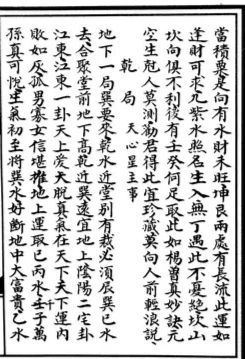 當積粟是向有水財未旺坤艮兩處有長流此運如
逢財可求九紫水照名主入無丁遇此不憂絕坎山
坎向俱不利後有壬癸何足取此如楊曾真妙訣元
空生尅人莫測勸君得此宜珍藏莫向人前輕浪說
乾局 天心星主事
地下一局巽要來乾水近堂別有裁必須辰巽巳水
去合聚堂前地下高乾近巽遠宜地上陰陽二宅卦
江東江東一卦天上愛大脫真氣在天下天下運內
敗如灰孤男寡女信堪推地上運取巳丙水壬子萬
孫真可悅生氣初至將巽水好斷地中大富貴乙水